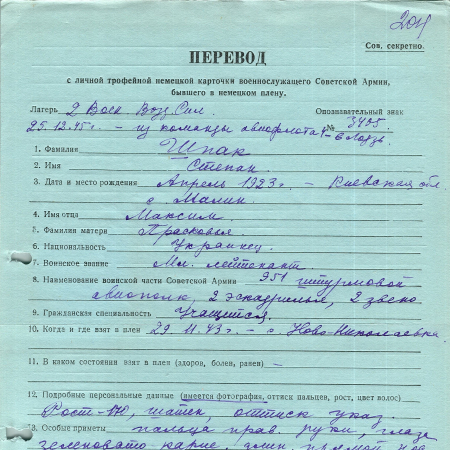 204
Сов. секретно.
ПЕРЕВОД
с личной трофейной немецкой карточки военнослужащего Советской Армии,
бывшего в немецком плену.
Лагерь 2 Воен. Возд. Сил. Опознавательный знак
№ 3405
25.12.45г. – из команды в Лодзь
1. Фамилия Шпак
2. Имя Степан
3. Дата и место рождения Апрель 1923г. – Киевская обл.
с. Малин
4. Имя отца Максим
5. Фамилия матери Прасковья
6. Национальность Украинец
7. Воинское звание Мл. лейтенант
8. Наименование воинской части Советской Армии 951 штурмовой
авиополк, 2 эскадрилья, 2 звено
9. Гражданская специальность Учащийся.
10. Когда и где взят в плен 29.11.43г. – с. Ново-Николаевка
11. В каком состоянии взят в плен (здоров, болен, ранен) –
12. Подробные персональные данные (имеется фотография, оттиск пальцев, рост, цвет волос)
Рост-170, шатен, оттиск указ.
13. Особые приметы пальца прав. руки, глаза
зеленовато карие,